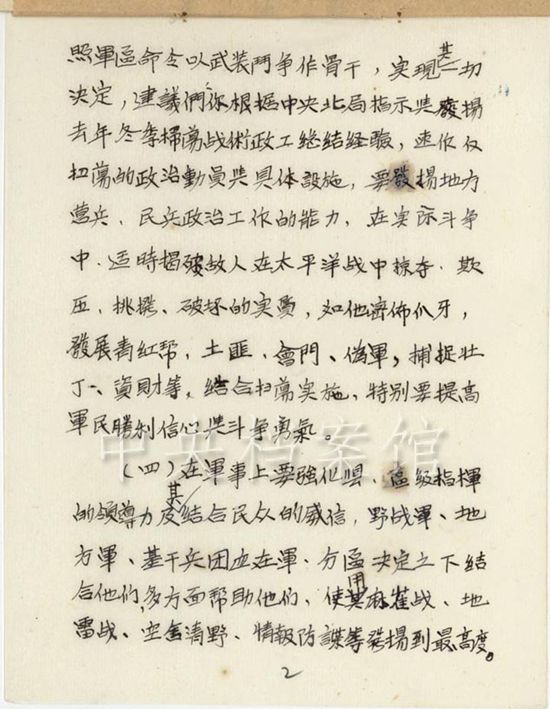 照軍區命令以武装鬥争作骨干，实現其一切
决定，建議們你根据中央北局指示與發揚
去年冬季掃蕩战術政工总结経驗，速作反
扫蕩的政治動員與具体設施，要發揚地方
营兵、民兵政治工作的能力，在实际斗争
中，适時揭破敌人在太平洋战中掠夺、欺
压、挑撥、破坏的实質，如他密佈爪牙，
發展青红帮、土匪、會門、偽軍，捕捉壮
丁、資財等，结合扫蕩实施，特别要提高
軍民勝利信心與斗争勇氣。
（四）在軍事上要強化县、區級指揮
的領導力及其结合民众的威信，野战軍、地
方軍、基干兵团应在軍、分區决定之下结
合他们，多方面帮助他们，使其用麻雀战、地
雷战、空舍清野、情報防諜等發揚到最高度。
2
中央档案馆